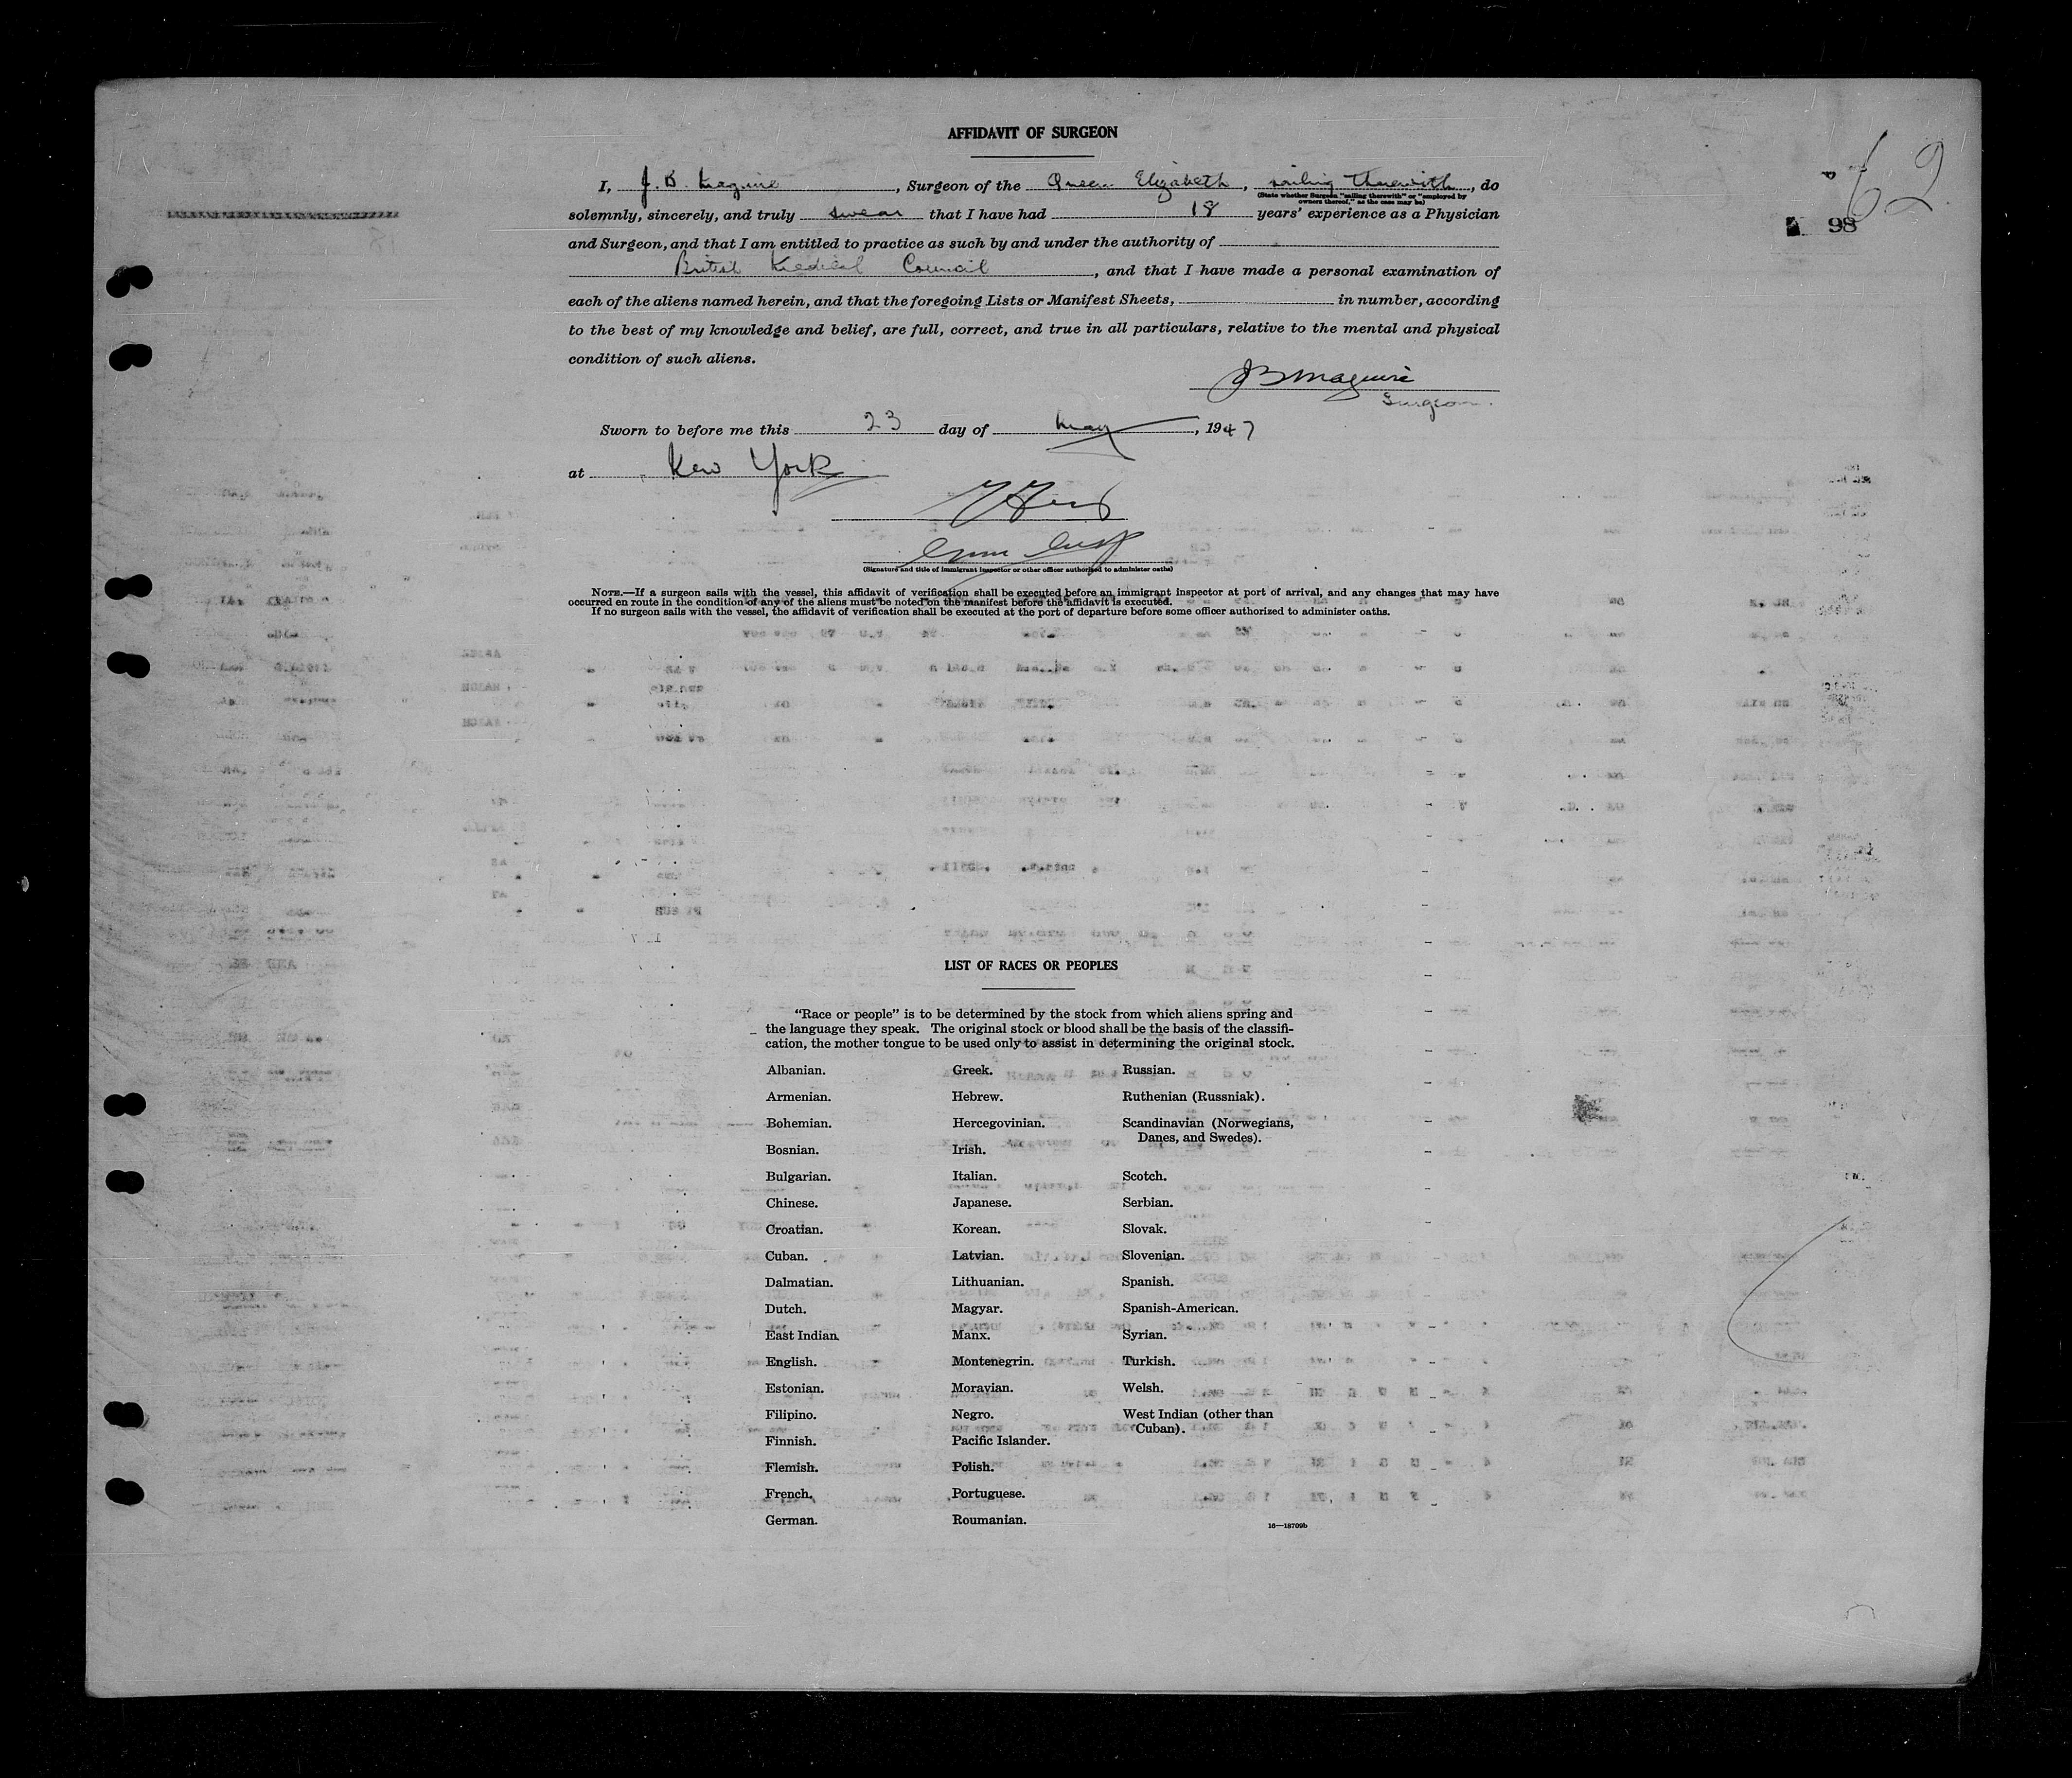 AFFIDAVIT OF SURGEON
62
98
I, J. B. Maguire, Surgeon of the Queen Elizabeth, sailing therewith, do
(State whether Surgeon "sailing therewith" or "employed by
owners thereof," as the case may be)
solemnly, sincerely, and truly swear that I have had 18 years' experience as a Physician
and Surgeon, and that I am entitled to practice as such by and under the authority of
British Medical Council, and that I have made a personal examination of
each of the aliens named herein, and that the foregoing Lists or Manifest Sheets, in number, according
to the best of my knowledge and belief, are full, correct, and true in all particulars, relative to the mental and physical
condition of such aliens.
JB Maguire
Surgeon.
Sworn to before me this 23 day of May, 1947
at New York
(Signature and title of immigrant inspector or other officer authorized to administer oaths)
NOTE.—If a surgeon sails with the vessel, this affidavit of verification shall be executed before an immigrant inspector at port of arrival, and any changes that may have
occurred en route in the condition of any of the aliens must be noted on the manifest before the affidavit is executed.
If no surgeon sails with the vessel, the affidavit of verification shall be executed at the port of departure before some officer authorized to administer oaths.
LIST OF RACES OR PEOPLES
"Race or people" is to be determined by the stock from which aliens spring and
the language they speak. The original stock or blood shall be the basis of the classifi-
cation, the mother tongue to be used only to assist in determining the original stock.
Albanian.
Armenian.
Bohemian.
Bosnian.
Bulgarian.
Chinese.
Croatian.
Cuban.
Dalmatian.
Dutch.
East Indian.
English.
Estonian.
Filipino.
Finnish.
Flemish.
French.
German.
Greek.
Hebrew.
Hercegovinian.
Irish.
Italian.
Japanese.
Korean.
Latvian.
Lithuanian.
Magyar.
Manx.
Montenegrin.
Moravian.
Negro.
Pacific Islander.
Polish.
Portuguese.
Roumanian.
Russian.
Ruthenian (Russniak).
Scandinavian (Norwegians,
Danes, and Swedes).
Scotch.
Serbian.
Slovak.
Slovenian.
Spanish.
Spanish-American.
Syrian.
Turkish.
Welsh.
West Indian (other than
Cuban).
16—18709b